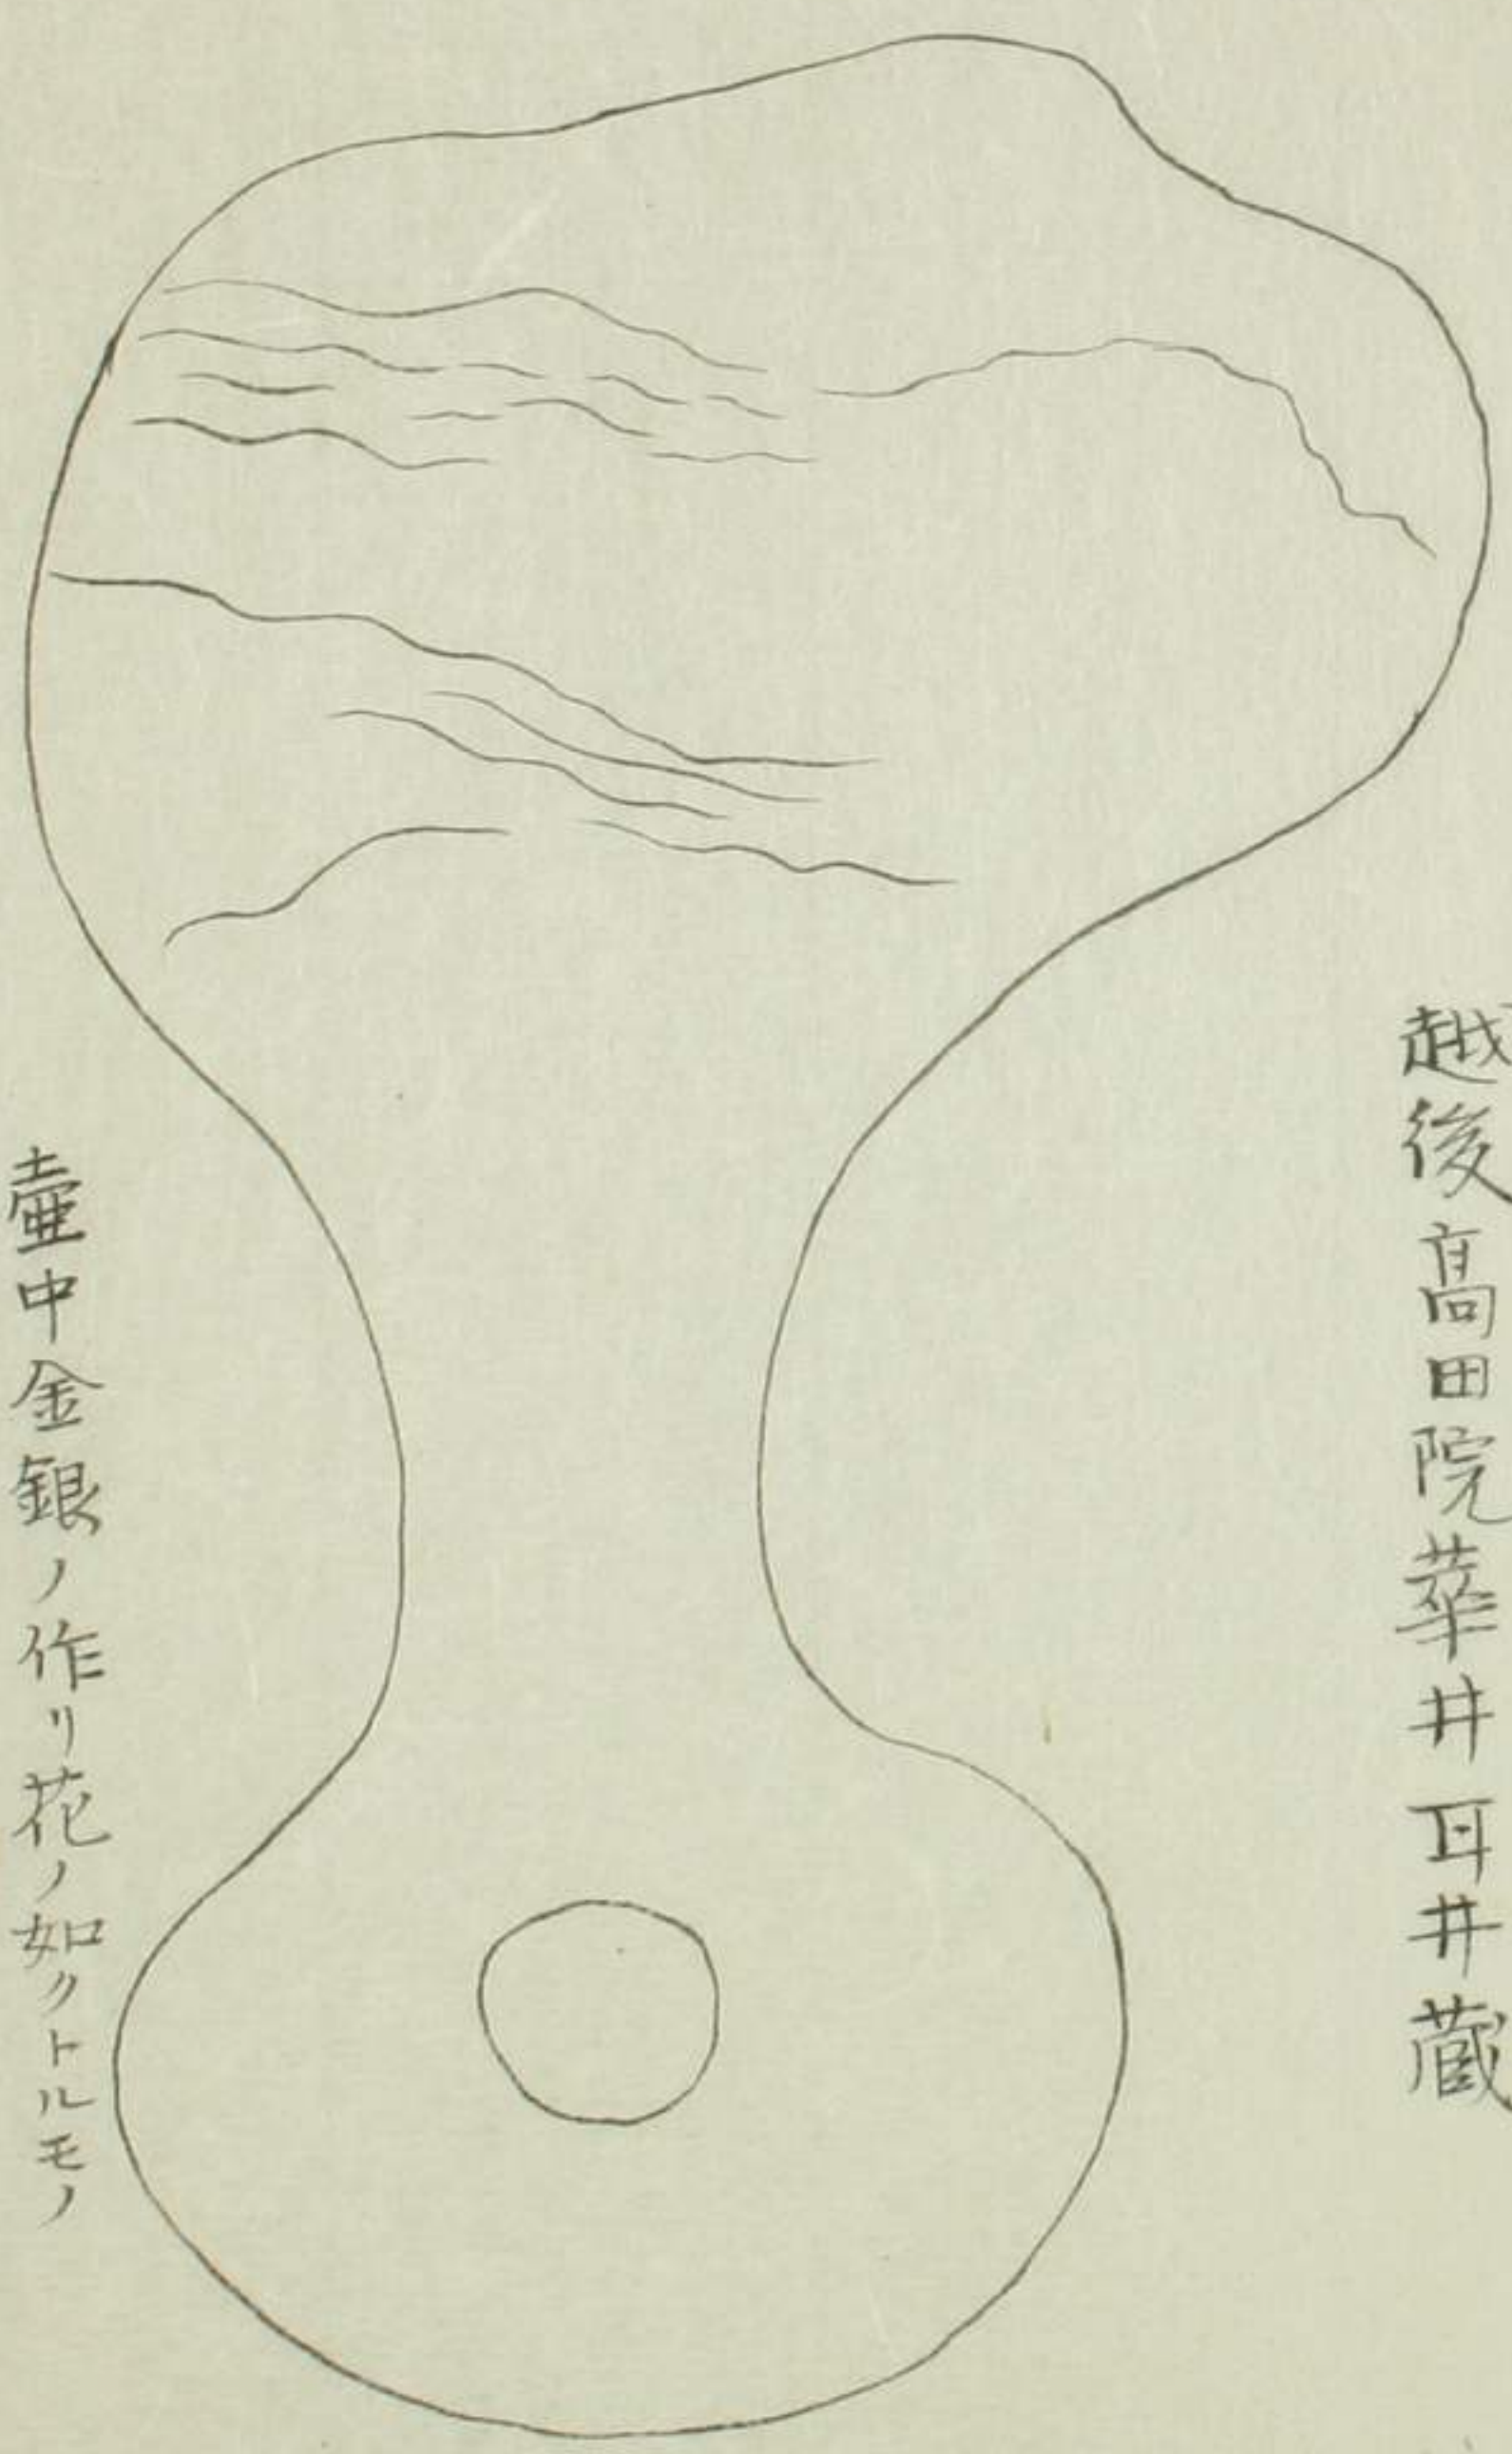 越後高田院華井耳井蔵
壷中金銀ノ作リ花ノ如クトルモノ